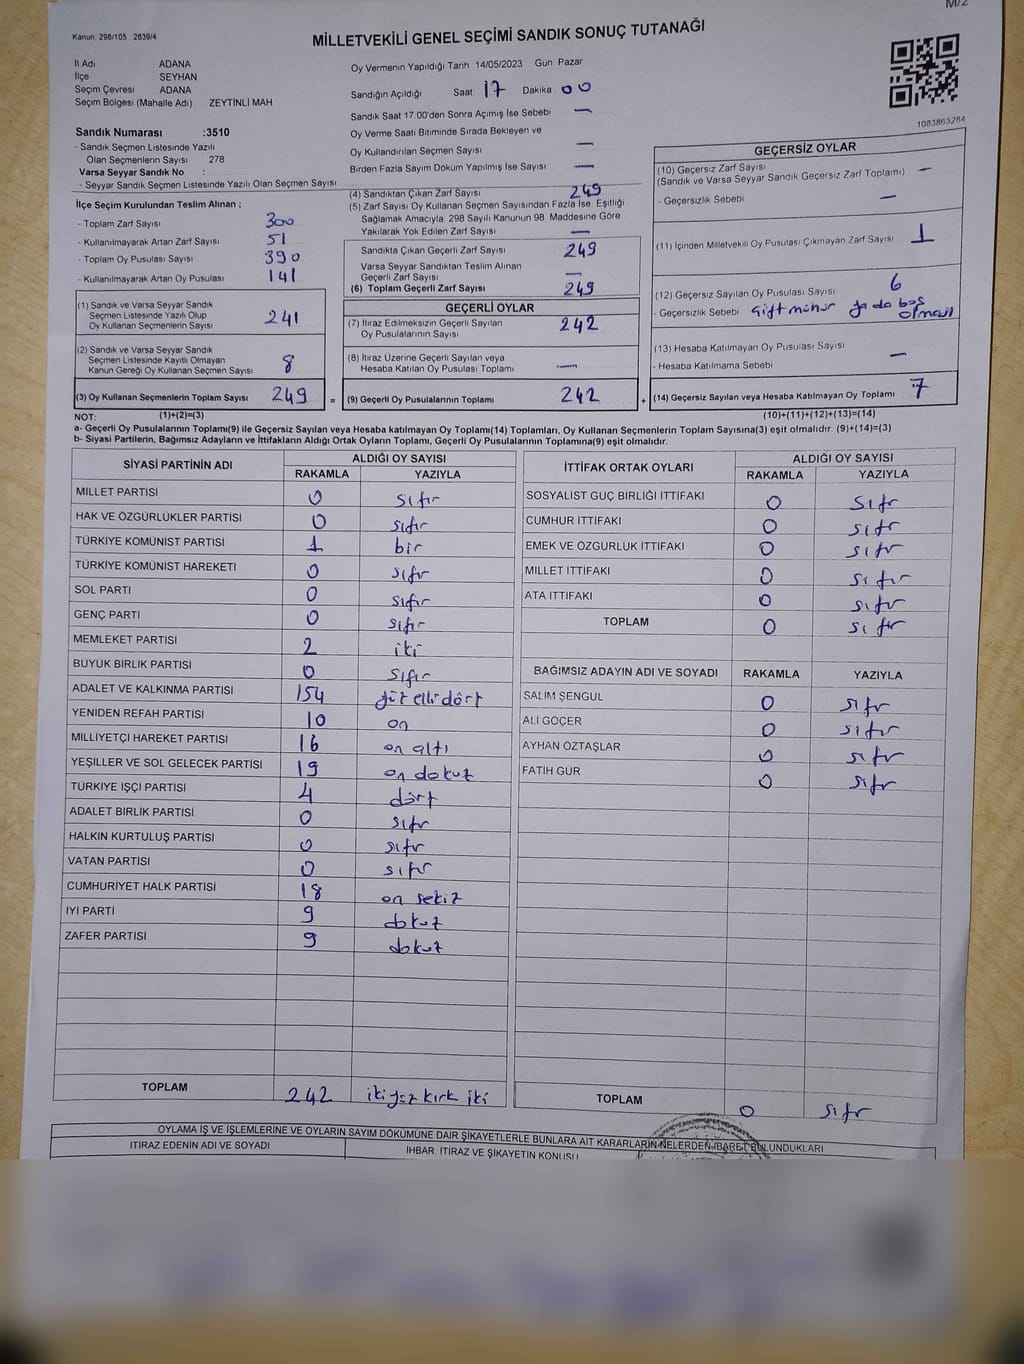 M/2
Kanun: 298/105 2839/4
MİLLETVEKİLİ GENEL SEÇİMİ SANDIK SONUÇ TUTANAĞI
İl Adı ADANA
İlçe SEYHAN
Seçim Çevresi ADANA
Seçim Bölgesi (Mahalle Adı) ZEYTİNLİ MAH
Oy Vermenin Yapıldığı Tarih 14/05/2023 Gün Pazar
Sandığın Açıldığı Saat 17 Dakika 00
Sandık Saat 17:00'den Sonra Açımış İse Sebebi —
1083863284
Sandık Numarası :3510
- Sandık Seçmen Listesinde Yazılı
Olan Seçmenlerin Sayısı : 278
Varsa Seyyar Sandık No :
- Seyyar Sandık Seçmen Listesinde Yazılı Olan Seçmen Sayısı
Oy Verme Saati Bitiminde Sırada Bekleyen ve
Oy Kullandırılan Seçmen Sayısı —
Birden Fazla Sayım Döküm Yapılmış İse Sayısı —
İlçe Seçim Kurulundan Teslim Alınan ;
- Toplam Zarf Sayısı 300
- Kullanılmayarak Artan Zarf Sayısı 51
- Toplam Oy Pusulası Sayısı 390
- Kullanılmayarak Artan Oy Pusulası 141
(1) Sandık ve Varsa Seyyar Sandık
Seçmen Listesinde Yazılı Olup
Oy Kullanan Seçmenlerin Sayısı 241
(2) Sandık ve Varsa Seyyar Sandık
Seçmen Listesinde Kayıtlı Olmayan
Kanun Gereği Oy Kullanan Seçmen Sayısı 8
(3) Oy Kullanan Seçmenlerin Toplam Sayısı 249 =
(4) Sandıktan Çıkan Zarf Sayısı 249
(5) Zarf Sayısı Oy Kullanan Seçmen Sayısından Fazla İse, Eşitliği
Sağlamak Amacıyla, 298 Sayılı Kanunun 98. Maddesine Göre
Yakılarak Yok Edilen Zarf Sayısı —
Sandıkta Çıkan Geçerli Zarf Sayısı 249
Varsa Seyyar Sandıktan Teslim Alınan
Geçerli Zarf Sayısı —
(6) Toplam Geçerli Zarf Sayısı 249
GEÇERLİ OYLAR
(7) İtiraz Edilmeksizin Geçerli Sayılan
Oy Pusulalarının Sayısı 242
(8) İtiraz Üzerine Geçerli Sayılan veya
Hesaba Katılan Oy Pusulası Toplamı —
(9) Geçerli Oy Pusulalarının Toplamı 242 +
GEÇERSİZ OYLAR
(10) Geçersiz Zarf Sayısı
(Sandık ve Varsa Seyyar Sandık Geçersiz Zarf Toplamı) —
- Geçersizlik Sebebi —
(11) İçinden Milletvekili Oy Pusulası Çıkmayan Zarf Sayısı 1
(12) Geçersiz Sayılan Oy Pusulası Sayısı 6
- Geçersizlik Sebebi Çift mühür ya da boş
olması
(13) Hesaba Katılmayan Oy Pusulası Sayısı —
- Hesaba Katılmama Sebebi
(14) Geçersiz Sayılan veya Hesaba Katılmayan Oy Toplamı 7
NOT: (1)+(2)=(3) (10)+(11)+(12)+(13)=(14)
a- Geçerli Oy Pusulalarının Toplamı(9) ile Geçersiz Sayılan veya Hesaba katılmayan Oy Toplamı(14) Toplamları, Oy Kullanan Seçmenlerin Toplam Sayısına(3) eşit olmalıdır. (9)+(14)=(3)
b- Siyasi Partilerin, Bağımsız Adayların ve İttifakların Aldığı Ortak Oyların Toplamı, Geçerli Oy Pusulalarının Toplamına(9) eşit olmalıdır.
SİYASİ PARTİNİN ADI ALDIĞI OY SAYISI
RAKAMLA YAZIYLA
MİLLET PARTİSİ 0 sıfır
HAK VE ÖZGÜRLÜKLER PARTİSİ 0 sıfır
TÜRKİYE KOMÜNİST PARTİSİ 1 bir
TÜRKİYE KOMÜNİST HAREKETİ 0 sıfır
SOL PARTİ 0 sıfır
GENÇ PARTİ 0 sıfır
MEMLEKET PARTİSİ 2 iki
BÜYÜK BİRLİK PARTİSİ 0 sıfır
ADALET VE KALKINMA PARTİSİ 154 yüz elli dört
YENİDEN REFAH PARTİSİ 10 on
MİLLİYETÇİ HAREKET PARTİSİ 16 on altı
YEŞİLLER VE SOL GELECEK PARTİSİ 19 on dokuz
TÜRKİYE İŞÇİ PARTİSİ 4 dört
ADALET BİRLİK PARTİSİ 0 sıfır
HALKIN KURTULUŞ PARTİSİ 0 sıfır
VATAN PARTİSİ 0 sıfır
CUMHURİYET HALK PARTİSİ 18 on sekiz
İYİ PARTİ 9 dokuz
ZAFER PARTİSİ 9 dokuz
TOPLAM 242 iki yüz kırk iki
İTTİFAK ORTAK OYLARI ALDIĞI OY SAYISI
RAKAMLA YAZIYLA
SOSYALİST GÜÇ BİRLİĞİ İTTİFAKI 0 sıfır
CUMHUR İTTİFAKI 0 sıfır
EMEK VE ÖZGÜRLÜK İTTİFAKI 0 sıfır
MİLLET İTTİFAKI 0 sıfır
ATA İTTİFAKI 0 sıfır
TOPLAM 0 sıfır
BAĞIMSIZ ADAYIN ADI VE SOYADI RAKAMLA YAZIYLA
SALİM ŞENGÜL 0 sıfır
ALİ GÖÇER 0 sıfır
AYHAN ÖZTAŞLAR 0 sıfır
FATİH GÜR 0 sıfır
TOPLAM 0 sıfır
OYLAMA İŞ VE İŞLEMLERİNE VE OYLARIN SAYIM DÖKÜMÜNE DAİR ŞİKAYETLERLE BUNLARA AİT KARARLARIN NELERDEN İBARET BULUNDUKLARI
İTİRAZ EDENİN ADI VE SOYADI İHBAR, İTİRAZ VE ŞİKAYETİN KONUSU